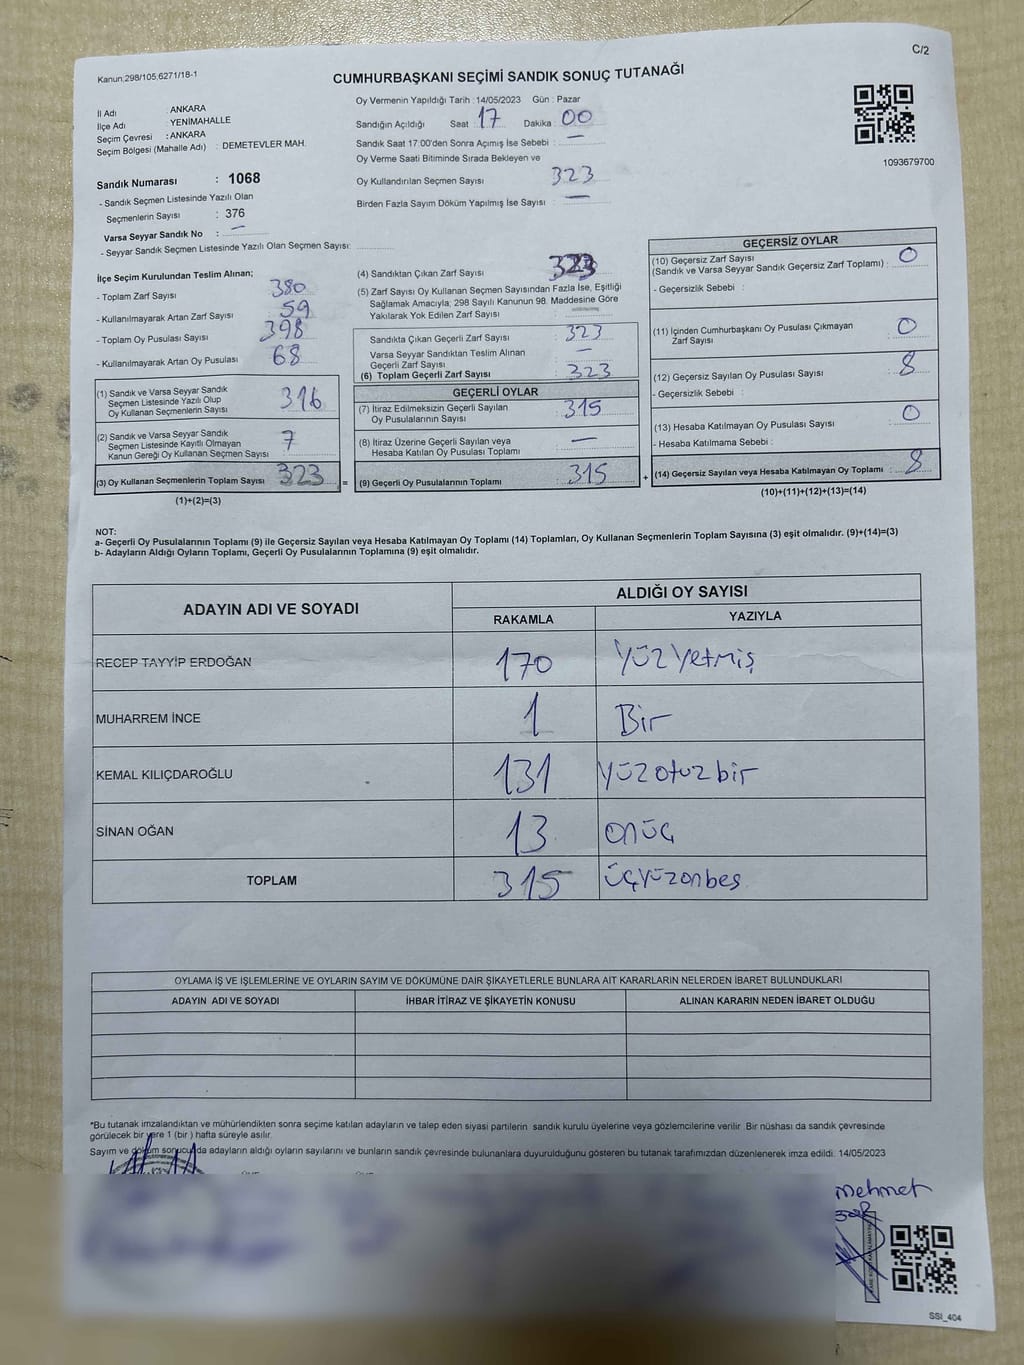 C/2
Kanun:298/105,6271/18-1
CUMHURBAŞKANI SEÇİMİ SANDIK SONUÇ TUTANAĞI
İl Adı : ANKARA
İlçe Adı : YENİMAHALLE
Seçim Çevresi : ANKARA
Seçim Bölgesi (Mahalle Adı) : DEMETEVLER MAH.
Sandık Numarası : 1068
- Sandık Seçmen Listesinde Yazılı Olan
Seçmenlerin Sayısı : 376
Varsa Seyyar Sandık No : —
- Seyyar Sandık Seçmen Listesinde Yazılı Olan Seçmen Sayısı:
Oy Vermenin Yapıldığı Tarih : 14/05/2023 Gün : Pazar
Sandığın Açıldığı Saat : 17 Dakika : 00
Sandık Saat 17:00'den Sonra Açımış İse Sebebi : —
Oy Verme Saati Bitiminde Sırada Bekleyen ve
Oy Kullandırılan Seçmen Sayısı 323
Birden Fazla Sayım Döküm Yapılmış İse Sayısı : —
1093679700
İlçe Seçim Kurulundan Teslim Alınan;
- Toplam Zarf Sayısı 380
- Kullanılmayarak Artan Zarf Sayısı : 59
- Toplam Oy Pusulası Sayısı 398
- Kullanılmayarak Artan Oy Pusulası 68
(1) Sandık ve Varsa Seyyar Sandık
Seçmen Listesinde Yazılı Olup
Oy Kullanan Seçmenlerin Sayısı 316
(2) Sandık ve Varsa Seyyar Sandık
Seçmen Listesinde Kayıtlı Olmayan
Kanun Gereği Oy Kullanan Seçmen Sayısı : 7
(3) Oy Kullanan Seçmenlerin Toplam Sayısı 323 =
(1)+(2)=(3)
(4) Sandıktan Çıkan Zarf Sayısı 323
(5) Zarf Sayısı Oy Kullanan Seçmen Sayısından Fazla İse, Eşitliği
Sağlamak Amacıyla; 298 Sayılı Kanunun 98. Maddesine Göre
Yakılarak Yok Edilen Zarf Sayısı :
Sandıkta Çıkan Geçerli Zarf Sayısı : 323
Varsa Seyyar Sandıktan Teslim Alınan
Geçerli Zarf Sayısı : —
(6) Toplam Geçerli Zarf Sayısı : 323
GEÇERLİ OYLAR
(7) İtiraz Edilmeksizin Geçerli Sayılan
Oy Pusulalarının Sayısı : 315
(8) İtiraz Üzerine Geçerli Sayılan veya
Hesaba Katılan Oy Pusulası Toplamı : —
(9) Geçerli Oy Pusulalarının Toplamı : 315 +
GEÇERSİZ OYLAR
(10) Geçersiz Zarf Sayısı
(Sandık ve Varsa Seyyar Sandık Geçersiz Zarf Toplamı) : 0
- Geçersizlik Sebebi :
(11) İçinden Cumhurbaşkanı Oy Pusulası Çıkmayan
Zarf Sayısı : 0
(12) Geçersiz Sayılan Oy Pusulası Sayısı : 8
- Geçersizlik Sebebi :
(13) Hesaba Katılmayan Oy Pusulası Sayısı : 0
- Hesaba Katılmama Sebebi :
(14) Geçersiz Sayılan veya Hesaba Katılmayan Oy Toplamı : 8
(10)+(11)+(12)+(13)=(14)
NOT:
a- Geçerli Oy Pusulalarının Toplamı (9) ile Geçersiz Sayılan veya Hesaba Katılmayan Oy Toplamı (14) Toplamları, Oy Kullanan Seçmenlerin Toplam Sayısına (3) eşit olmalıdır. (9)+(14)=(3)
b- Adayların Aldığı Oyların Toplamı, Geçerli Oy Pusulalarının Toplamına (9) eşit olmalıdır.
ADAYIN ADI VE SOYADI
ALDIĞI OY SAYISI
RAKAMLA YAZIYLA
RECEP TAYYİP ERDOĞAN 170 Yüzyetmiş
MUHARREM İNCE 1 Bir
KEMAL KILIÇDAROĞLU 131 yüzotuzbir
SİNAN OĞAN 13 onüç
TOPLAM 315 üçyüzonbeş
OYLAMA İŞ VE İŞLEMLERİNE VE OYLARIN SAYIM VE DÖKÜMÜNE DAİR ŞİKAYETLERLE BUNLARA AİT KARARLARIN NELERDEN İBARET BULUNDUKLARI
ADAYIN ADI VE SOYADI İHBAR İTİRAZ VE ŞİKAYETİN KONUSU ALINAN KARARIN NEDEN İBARET OLDUĞU
*Bu tutanak imzalandıktan ve mühürlendikten sonra seçime katılan adayların ve talep eden siyasi partilerin sandık kurulu üyelerine veya gözlemcilerine verilir. Bir nüshası da sandık çevresinde
görülecek bir yere 1 (bir) hafta süreyle asılır.
Sayım ve döküm sonucunda adayların aldığı oyların sayılarını ve bunların sandık çevresinde bulunanlara duyurulduğunu gösteren bu tutanak tarafımızdan düzenlenerek imza edildi. 14/05/2023
Mehmet
SSI_404